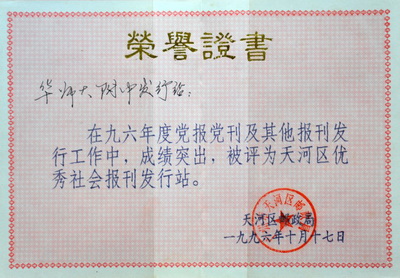 榮譽證書
华师大附中发行站：
在九六年度党报党刊及其他报刊发
行工作中，成绩突出，被评为天河区优
秀社会报刊发行站。
天河区邮政局
一九九六年十月十七日